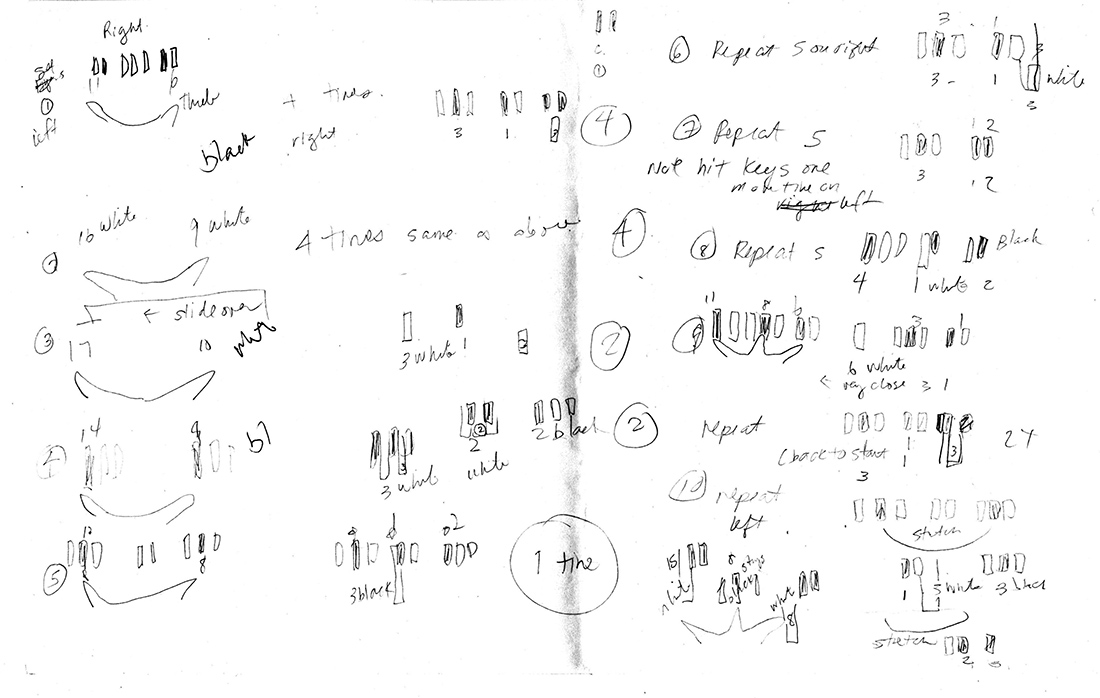 Right
11 6
①
left
Thumb
black
4 times
right
3 1 2
16 white 9 white
4 times same as above
← slide over
③
17 10 white
3 white 1 2
14 9 bl
3 white 2 white 2 black
⑤
12 8
3 black 2
1 time
①
⑥ Repeat 5 on right
3 1 3
3 - 1 white
3
④
⑦ Repeat 5
Not hit keys one
more time on
left
1 2
3 1 2
4
⑧ Repeat 5
Black
4 1 white 2
②
⑨
11 8 6
3 1
6 white
very close 3 1
②
repeat
(back to start
3 1 3
2x
⑩ repeat
left
stretch
15 white
8 stays
white 8
1 5 white 3 black
stretch
2